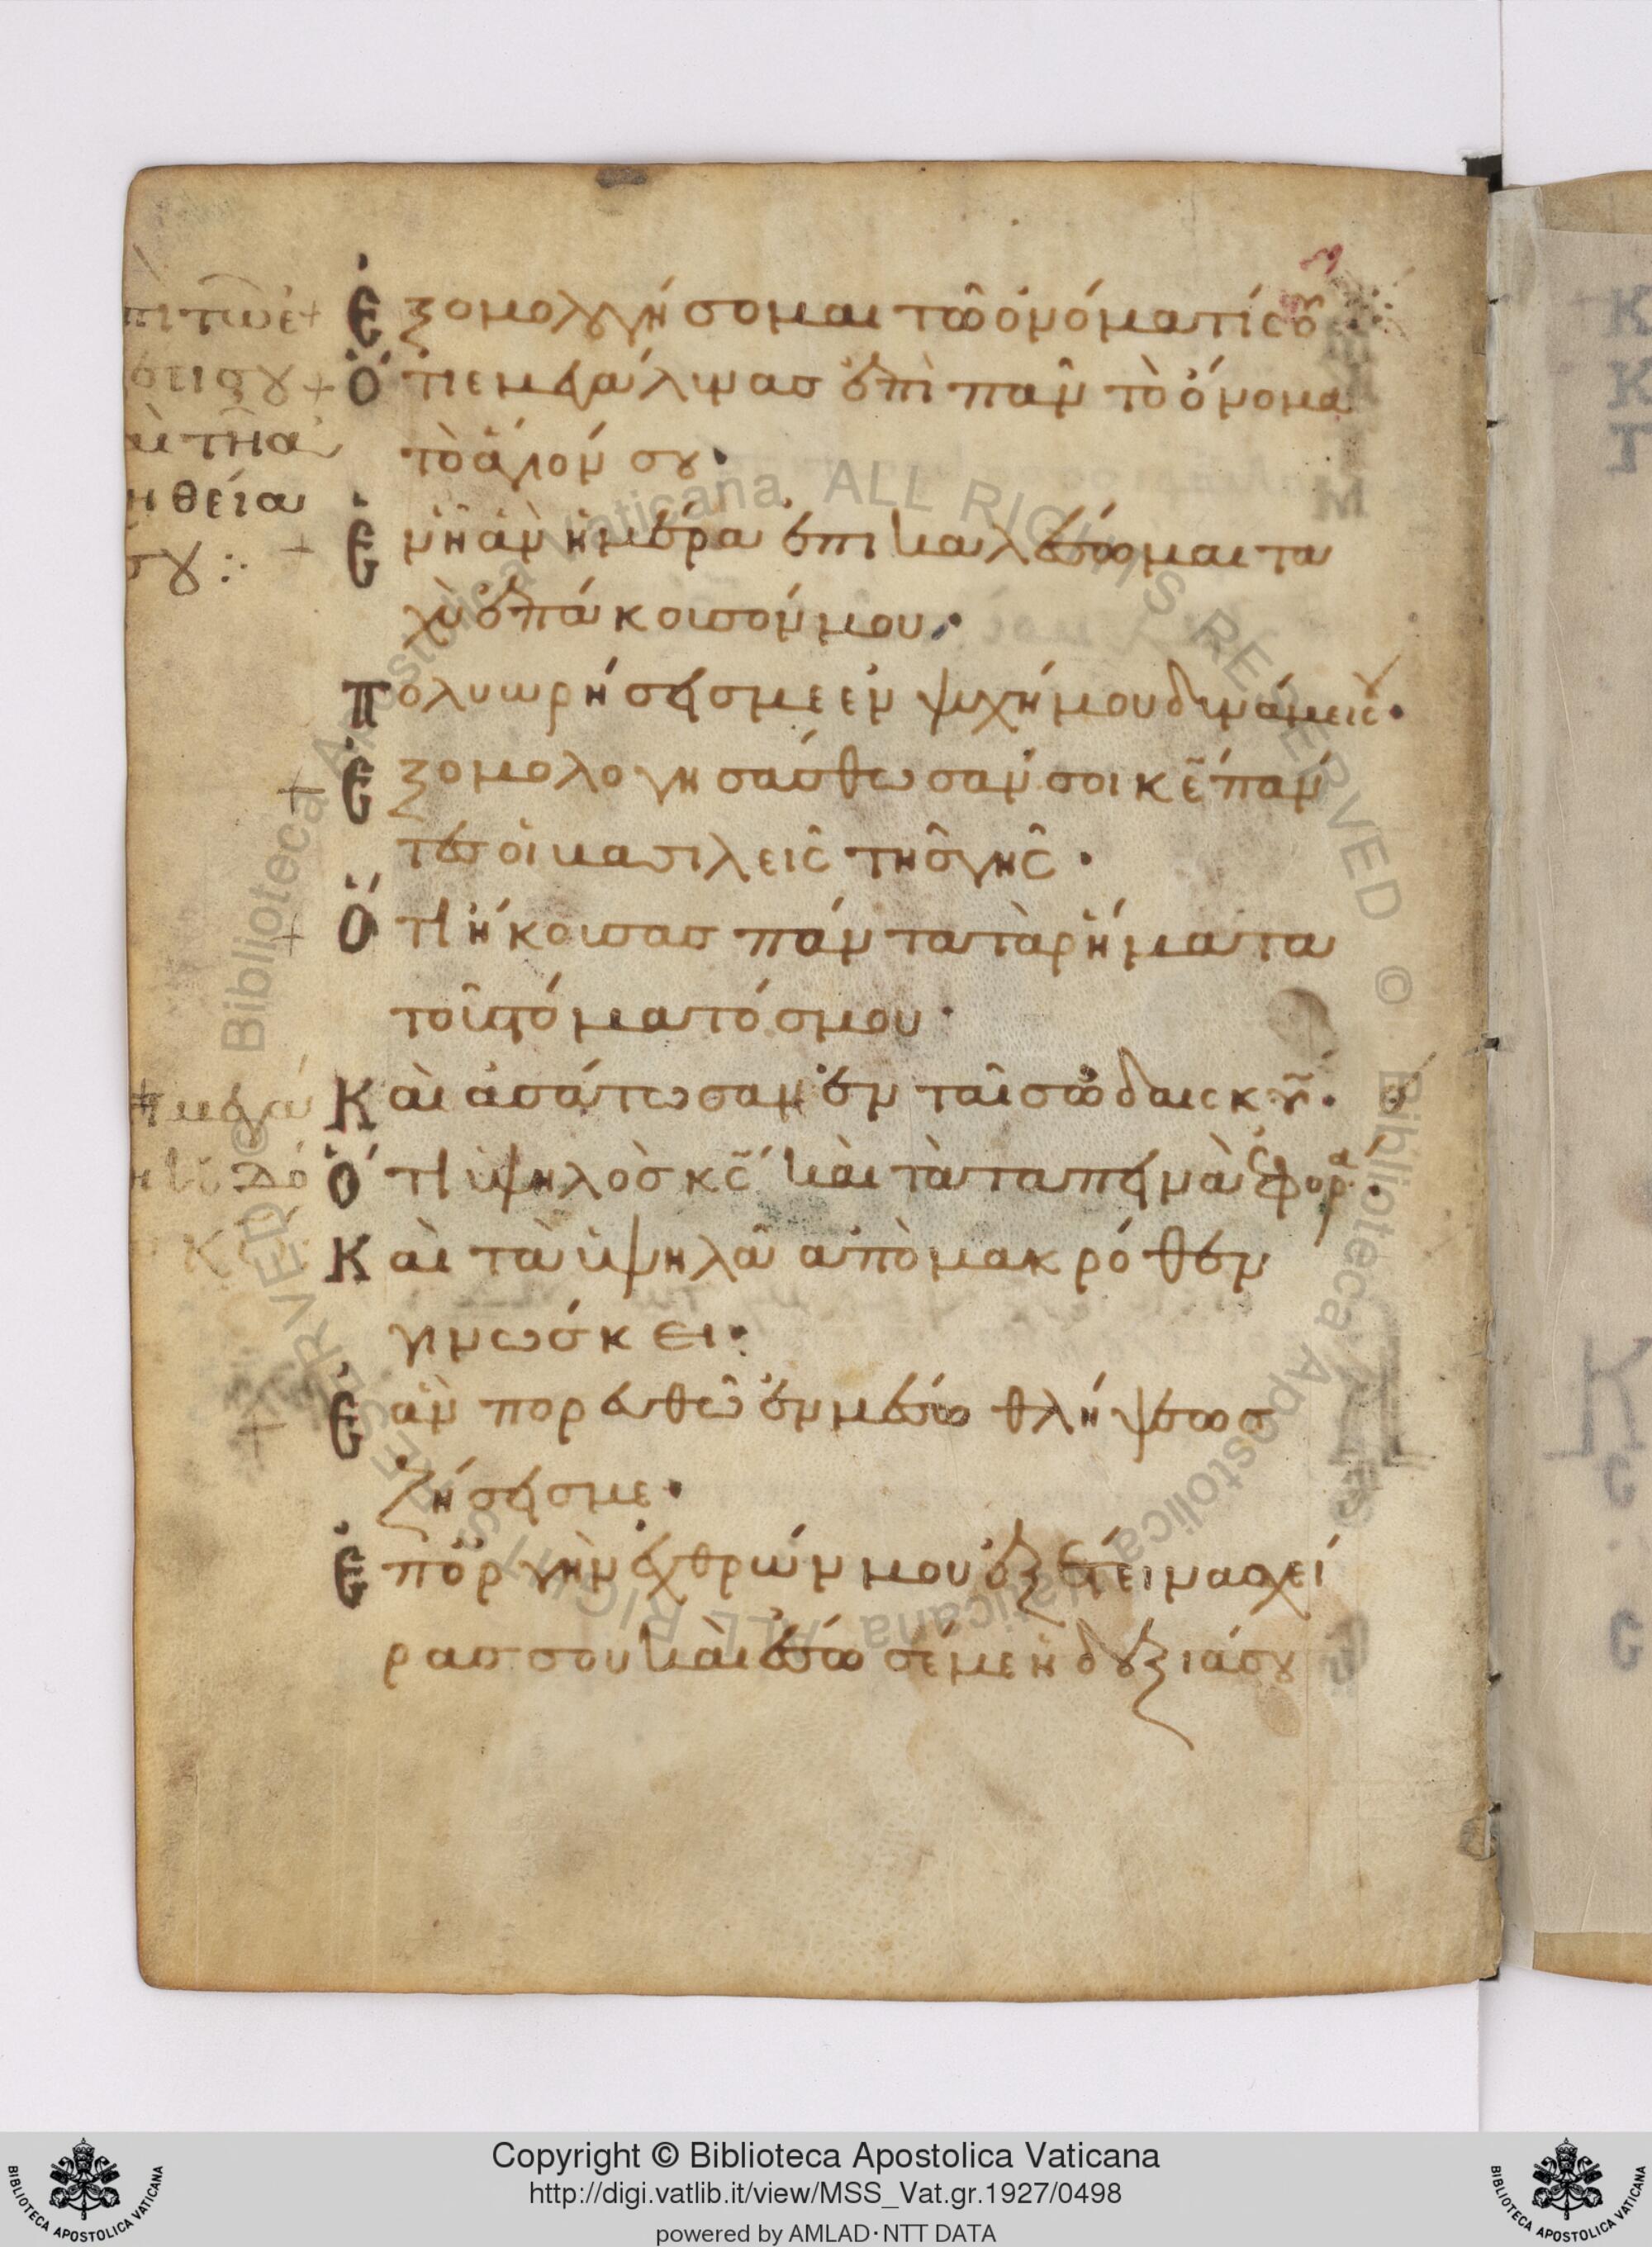 Ἐξομολογήσομαι τῶ ὀνόματί σȣ
Ὅτι ἐμεγάλυνας ἐπὶ πᾶν τὸ ὄνομα
τὸ ἅγιόν σȣ·
Ἐν ἧ ἂν ἡμέρα ἐπικαλέσωμαι τα
χὺ ἐπάκουσόν μου·
Πολυωρήσεις με ἐν ψυχή μου δυνάμεις·
Ἐξομολογησάσθωσάν σοι κε̄ πάν
τες οἱ βασιλεῖς τῆς γῆς·
Ὅτι ἤκουσας πάντα τὰ ρήματα
τοῦ στόματός μου·
Καὶ ἀσάτωσαν ἐν ταῖς ὠδαις κῡ·
Ὅτι ὑψηλὸς κς̄ καὶ τὰ ταπεινὰ ἐφορᾶ·
Καὶ τὰ ὑψηλὰ ἀπὸ μακρόθεν
γινώσκει·
Ἐὰν πορευθῶ ἐν μέσω θλήψεως
ζήσεις με·
Ἐπ' ὀργὴν ἐχθρών μου ἐξέτεινας χεί
ρας σου καὶ ἔσωσέ με ἡ δεξιά σȣ
πι τῶ ἐ
έει σȣ
αὶ τῆ ἀ
ηθεία
σȣ :·
Copyright © Biblioteca Apostolica Vaticana
http://digi.vatlib.it/view/MSS_Vat.gr.1927/0498
powered by AMLAD·NTT DATA
BIBLIOTECA APOSTOLICA VATICANA
BIBLIOTECA APOSTOLICA VATICANA
© Biblioteca Apostolica Vaticana ALL RIGHTS RESERVED
© Biblioteca Apostolica Vaticana ALL RIGHTS RESERVED